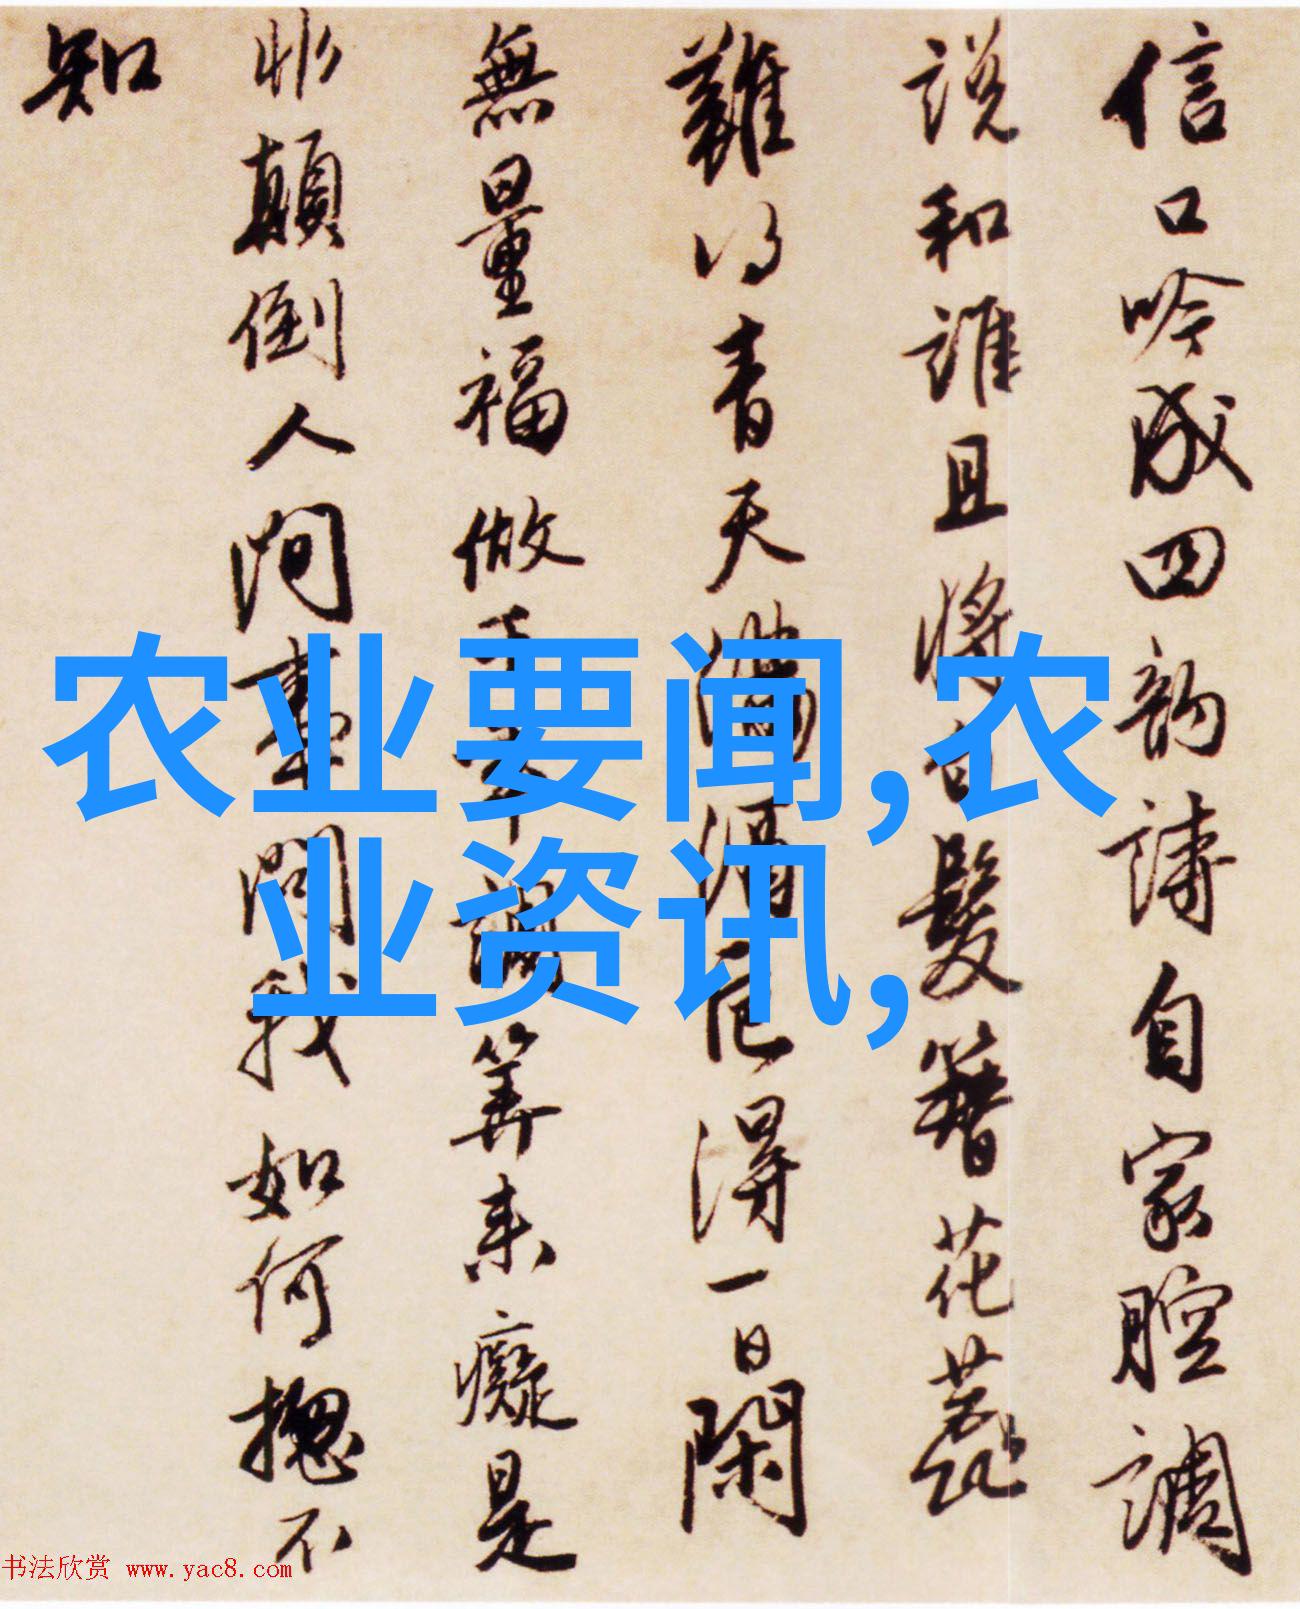 信口吟成四韵诗自家腔调
说和谁且将白髪簪花蕊
难得青天满酒卮得一日闲
无量福做千年调算来痴是
非颠倒人间事问我如何总不
知
农业要闻,农
业资讯,
书法欣赏 www.yac8.com